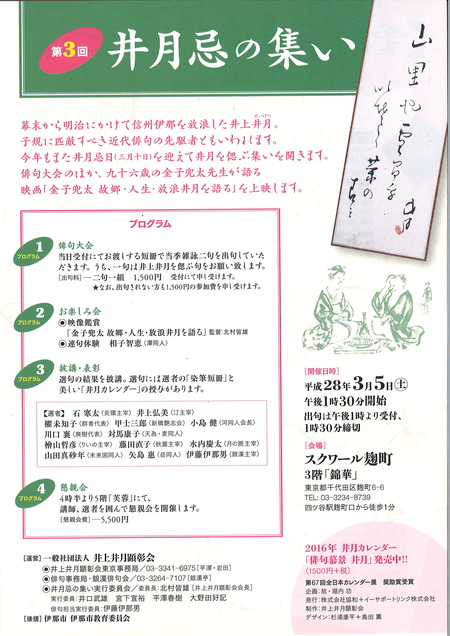 第3回
井月忌の集い
幕末から明治にかけて信州伊那を放浪した井上井月。
せいげつ
子規に匹敵すべき近代俳句の先駆者ともいわれます。
今年もまた井月忌日(三月十日)を迎えて井月を偲ぶ集いを開きます。
俳句大会のほか、九十六歳の金子兜太先生が語る
映画「金子兜太 故郷・人生・放浪井月を語る」を上映します。
プログラム
プログラム1
俳句大会
当日受付にてお渡しする短冊で当季雑詠二句を出句していた
だきます。うち、一句は井上井月を偲ぶ句をお願い致します。
[出句料]―二句一組 1,500円 受付にて申し受けます。
★なお、出句されない方も1,500円の参加費を申し受けます。
プログラム2
お楽しみ会
●映像鑑賞
「金子兜太 故郷・人生・放浪井月を語る」監督:北村皆雄
●連句体験 相子智恵(澤同人)
プログラム3
披講・表彰
選句の結果を披講。選句には選者の「染筆短冊」と
美しい「井月カレンダー」の授与があります。
【選者】 石 寒太(炎環主宰) 井上弘美(汀主宰)
櫂未知子(群青代表) 甲士三郎(新橋艶志会) 小島 健(河同人会長)
川口 襄(爽樹代表) 対馬康子(天為・麦同人)
檜山哲彦(りいの主宰) 藤田直子(秋麗主宰) 水内慶太(月の匣主宰)
山田真砂年(未来図同人) 矢島 惠(岳同人) 伊藤伊那男(銀漢主宰)
プログラム4
懇親会
4時半より5階「芙蓉」にて、
講師、選者を囲んで懇親会を開催します。
[懇親会費]―5,500円
[開催日時]
平成28年3月5日(土)
午後1時30分開始
出句は午後1時より受付、
1時30分締切
[会場]
スクワール麹町
3階「錦華」
東京都千代田区麹町6-6
TEL: 03-3234-8739
四ツ谷駅麹町口から徒歩1分
[運営]一般社団法人 井上井月顕彰会
●井上井月顕彰会東京事務局/03-3341-6975[平澤・岩田]
●俳句事務局・銀漢俳句会/03-3264-7107[銀漢亭]
●井月忌の集い実行委員会/委員長:北村皆雄[井上井月顕彰会会長]
実行委員:井口武雄 宮下宣裕 平澤春樹 大野田好記
俳句担当実行委員:伊藤伊那男
[後援]伊那市 伊那市教育委員会
2016年 井月カレンダー
「俳句墓景 井月」発売中!!
(1500円+税)
第67回全日本カレンダー展 奨励賞受賞
企画:故・堀内 功
発行:株式会社協和+イーサポートリンク株式会社
制作:井上井月顕彰会
デザイン:杉浦康平+島田 薫